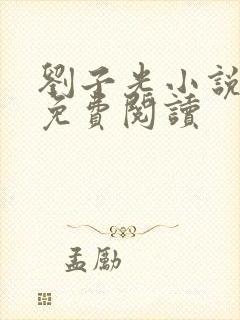 劉子光小說
免費閱讀
孟勵